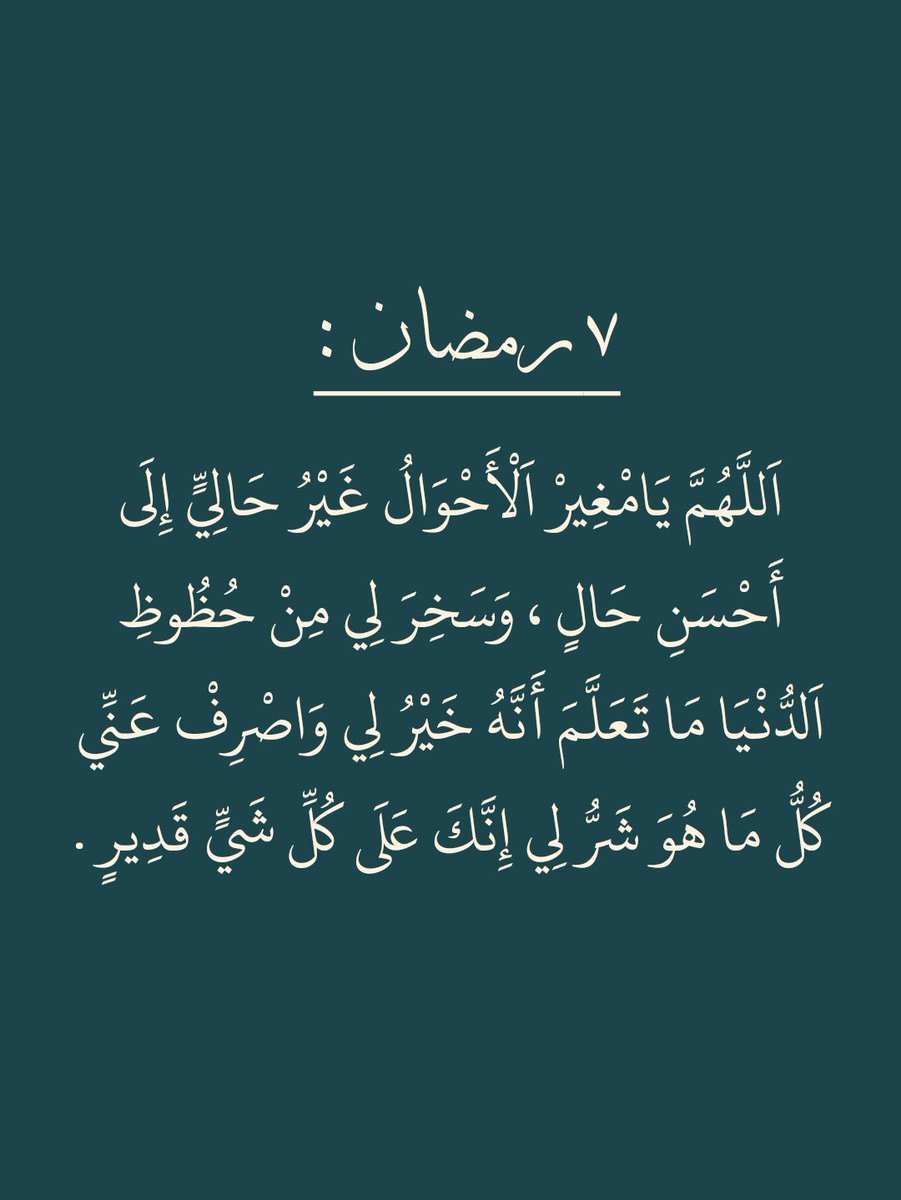 ٧ رمضان :
اَللَّهُمَّ يَامْغِيرْ اَلْأَحْوَالُ غَيْرُ حَالِيٍّ إِلَى
أَحْسَنِ حَالٍ ، وَسَخِرَ لِي مِنْ حُظُوظِ
اَلدُّنْيَا مَا تَعَلَّمَ أَنَّهُ خَيْرُ لِي وَاصْرِفْ عَنِّي
كُلُّ مَا هُوَ شَرُّ لِي إِنَّكَ عَلَى كُلِّ شَيٍّ قَدِيرٍ .